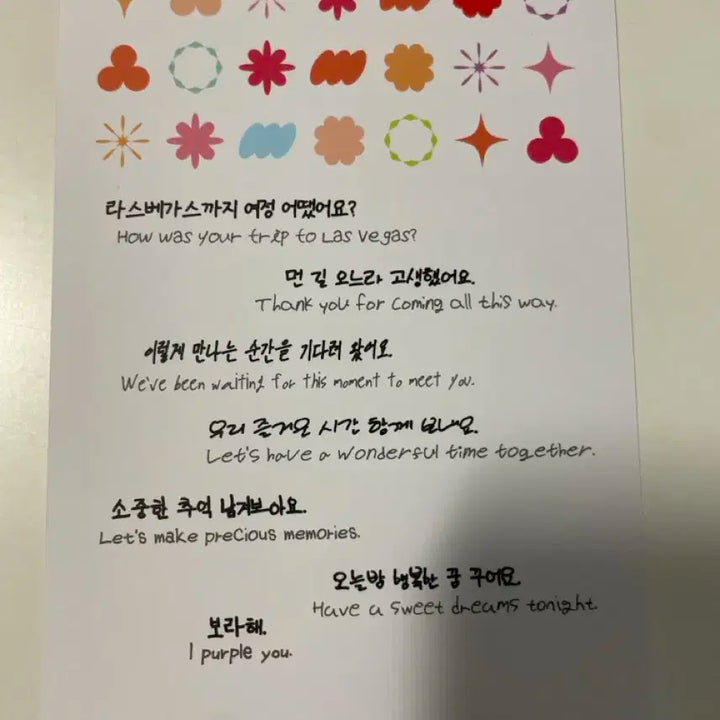 라스베가스까지 여정 어땠어요?
How was your trip to Las Vegas?
먼 길 오느라 고생했어요.
Thank you for coming all this way.
이렇게 만나는 순간을 기다려 왔어요.
We've been waiting for this moment to meet you.
우리 즐거운 시간 함께 보내요.
Let's have a wonderful time together.
소중한 추억 남겨보아요.
Let's make precious memories.
오늘밤 행복한 꿈 꾸어요.
Have a sweet dreams tonight.
보라해.
I purple you.